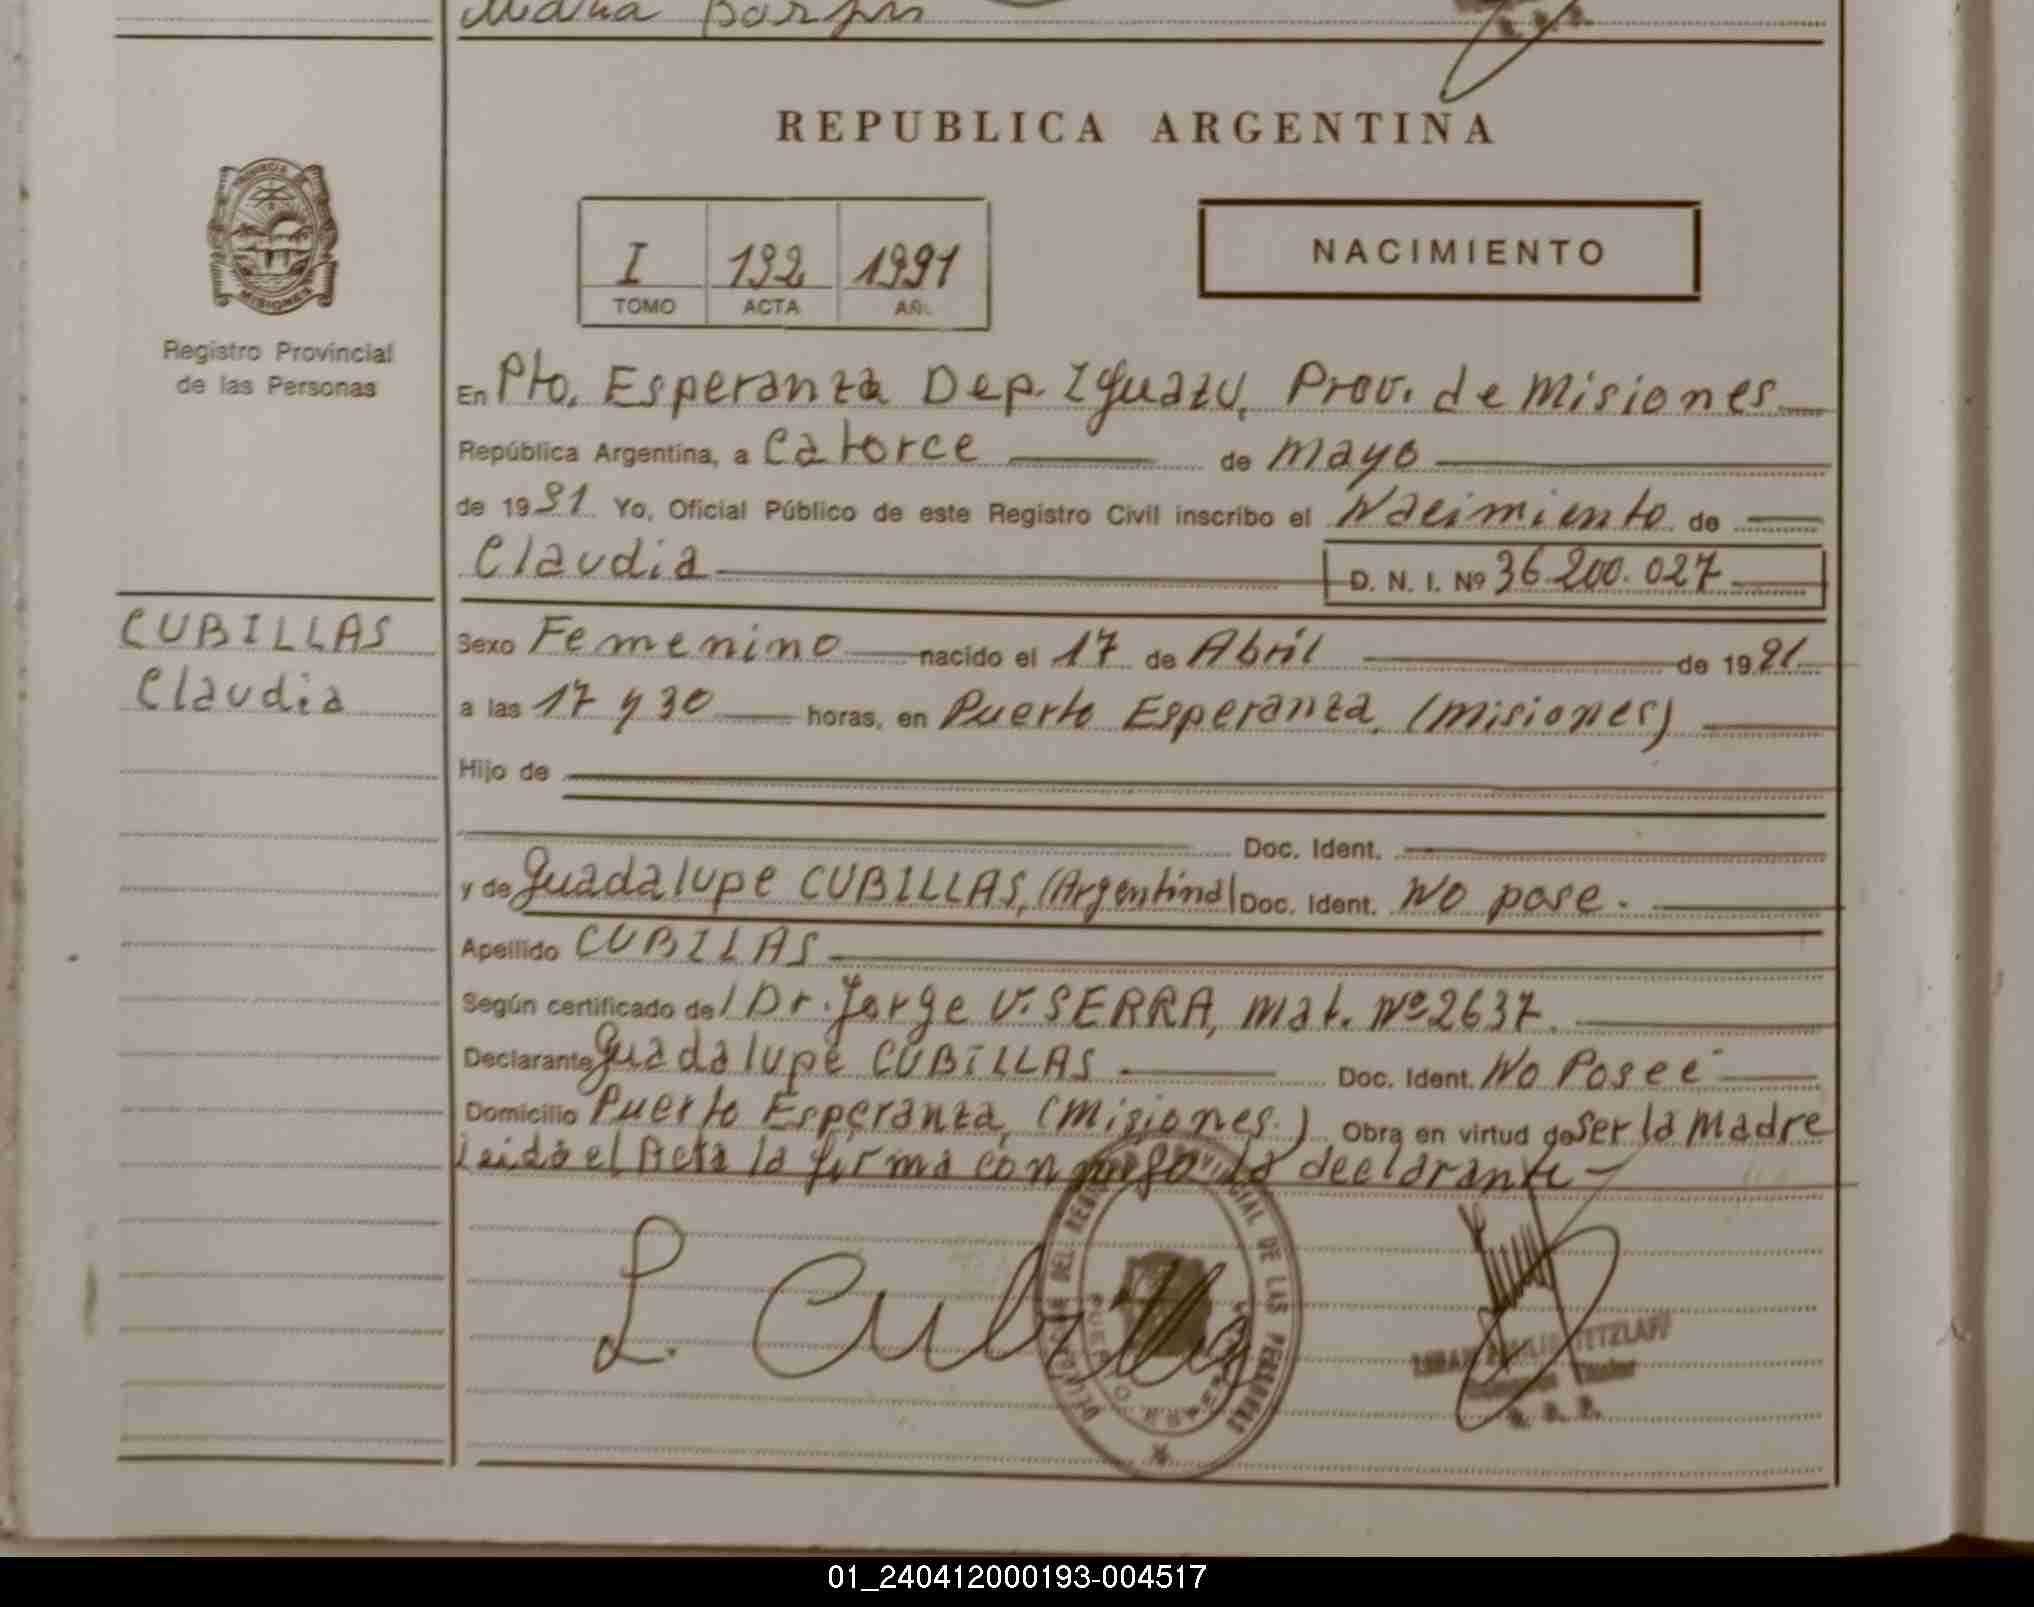 Maria
REPUBLICA ARGENTINA
PROVINCIA DE
MISIONES
Registro Provincial
de las Personas
I 192 1991
TOMO ACTA AÑO
NACIMIENTO
En Pto. Esperanza Dep. Iguazu, Prov. de Misiones
República Argentina, a Catorce de Mayo
de 1991 Yo, Oficial Público de este Registro Civil inscribo el Nacimiento de
Claudia D. N. I. Nº 36.200.027
CUBILLAS
Claudia
Sexo Femenino nacido el 17 de Abril de 1991
a las 17 y 30 horas, en Puerto Esperanza, (Misiones)
Hijo de
Doc. Ident.
y de Guadalupe CUBILLAS, (Argentina) Doc. Ident. No pose.
Apellido CUBILLAS
Según certificado del Dr. Jorge V. SERRA, Mat. Nº 2637.
Declarante Guadalupe CUBILLAS Doc. Ident. No Posee
Domicilio Puerto Esperanza, (Misiones.) Obra en virtud de Ser la Madre
Leida el Acta la firma conmigo la declarante
L. Cubillas
DELEGACION DEL REGISTRO PROVINCIAL DE LAS PERSONAS
PUERTO ESPERANZA
TETZLAFF
Titular
01_240412000193-004517